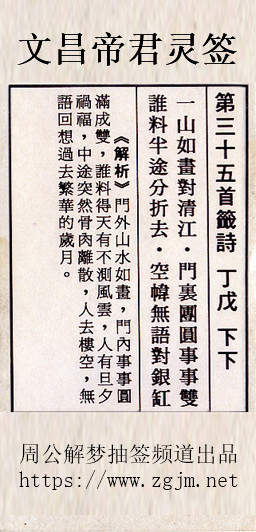 文昌帝君灵签
第三十五首籤詩 丁戊 下下
一山如畫對清江·門裏團圓事事雙
誰料半途分折去·空幃無語對銀缸
《解析》門外山水如畫，門內事事圓
滿成雙，誰料得天有不測風雲，人有旦夕
禍福，中途突然骨肉離散，人去樓空，無
語回想過去繁華的歲月。
周公解梦抽签频道出品
https://www.zgjm.net